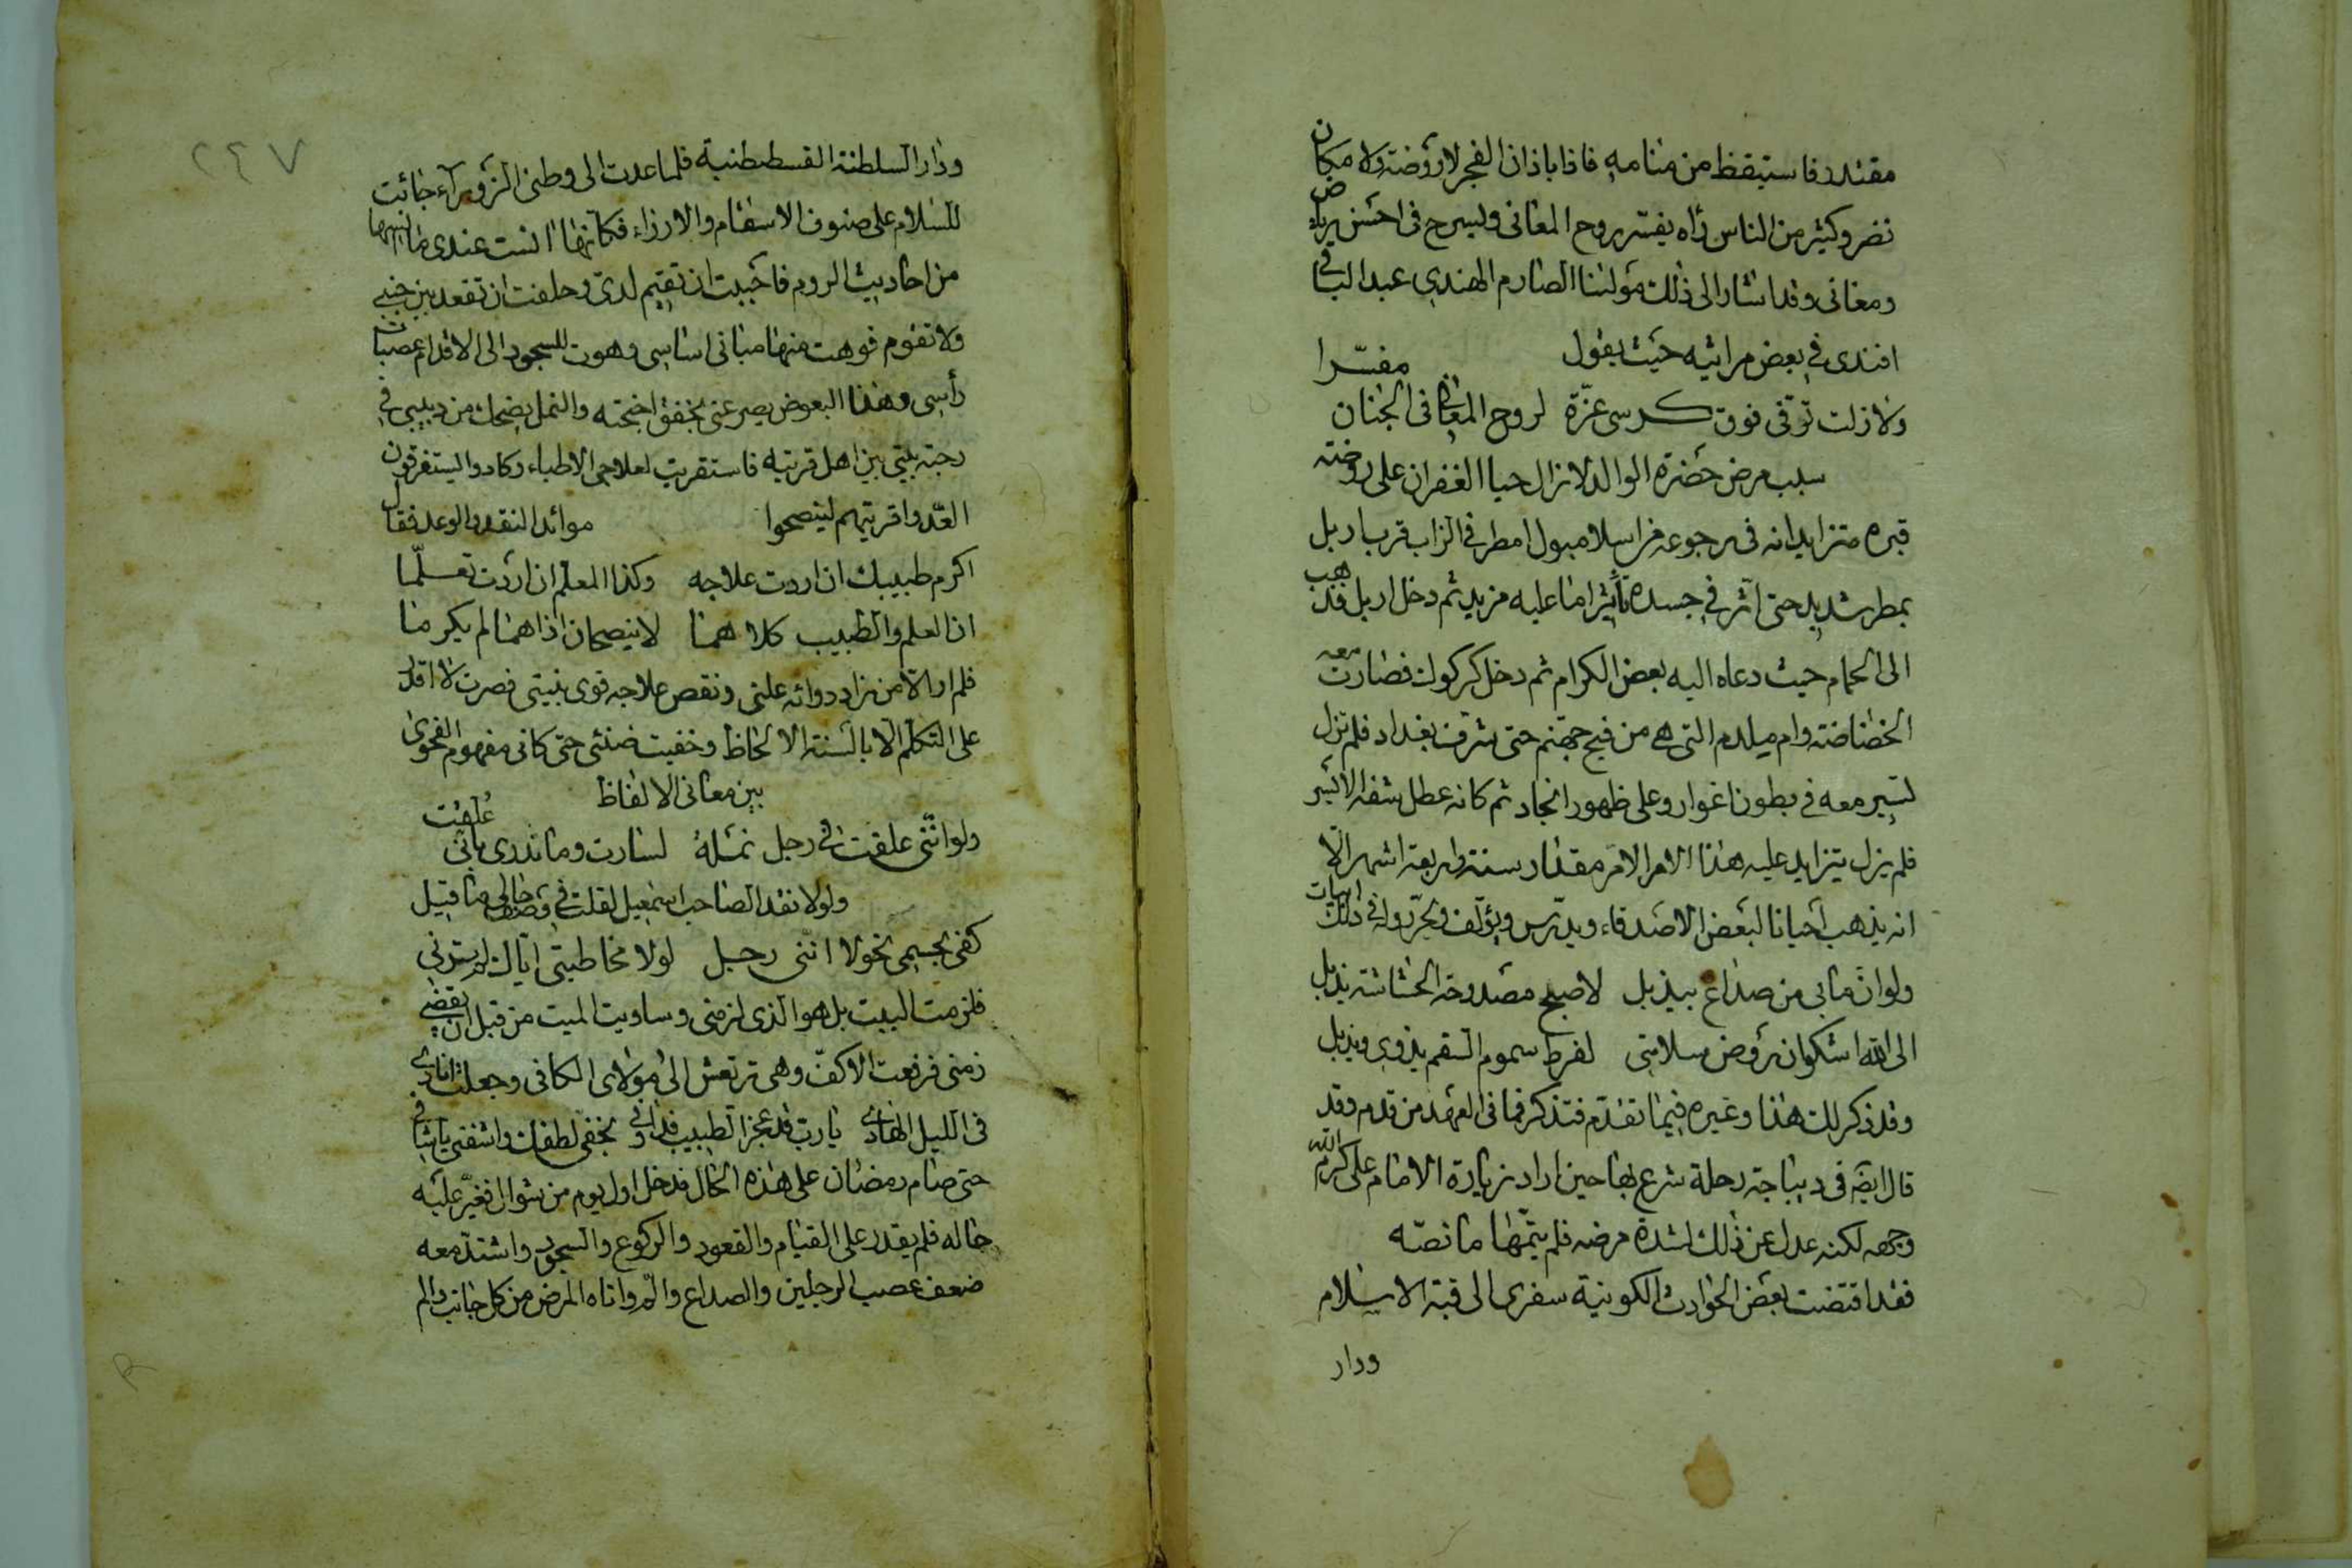 مقتدر فاستيقظ من منامه فاذا باذان الفجر لا روضة ولا مكان
نضر وكثير من الناس رآه يفسر روح المعانى ويسرح فى احسن رياض
ومغانى وقد اشار الى ذلك مولنا الصارم الهندى عبد الباقى
افندى فى بعض مراثيه حيث يقول
ولا زلت ترقى فوق كرسى عزّة لروح المعانى فى الجنان مفسّرا
سبب مرض حضرة الوالد لا زال حيا الغفران على روضته
قبره متزايدا انه فى رجوعه من اسلامبول امطر فى الزاب قرب اربل
بمطر شديد حتى اثّر فى جسده تأثيرا ما عليه مزيد ثم دخل اربل فذهب
الى الحمام حيث دعاه اليه بعض الكرام ثم دخل كركوك فصارت معه
الخضاضة وام ملدم التى هى من فيح جهنم حتى شرف بغداد فلم تزل
تسير معه فى بطون اغوار وعلى ظهور انجاد ثم كانه عطل شقه الايسر
فلم يزل يتزايد عليه هذا الامر الامر مقدار سنة واربعة اشهر الا
انه يذهب احيانا لبعض الاصدقاء ويدرس ويؤلف ويحرّر وله فى ذلك ابيات
ولو انّ ما بى من صداع بيذبل لاصبح مصدوحة الخشاشة يذبل
الى الله اشكو ان روض سلامتى لفرط سموم السقم يذوى ويذبل
وقد ذكر لك هذا وغيره فيما تقدّم فتذكر فما فى العهد من قدم وقد
قال ايضه فى ديباجة رحلة شرع بها حين اراد زيارة الامام على كرم الله
وجهه لكنه عدل عن ذلك لشدة مرضه فلم يتمّها ما نصّه
فقد اقتضت بعض الحوادث الكونية سفرى الى قبة الاسلام
ودار
٢٤٧
ودار السلطنة القسطنطنية فلما عدت الى وطنى الزوراء جائت
للسلام على صنوف الاسقام والارزاء فكانها انست عندى ما
من احاديث الروم فاحببت ان تقيم لدىّ وحلفت ان تقعد بين جنبى
ولا تقوم فوهت منها مبانى اساسى وهوت للسجود الى الاقدام عصبات
رأسى وهذا البعوض يصرعنى بخفق اجنحته والنمل يضحك من دبيبى فى
رحبة بيتى بين اهل قريته فاستقريت لعلاجى الاطباء وكادوا يستغرقون
العدّ واقريتهم لينصحوا موائد النقد والوعد فقال
اكرم طبيبك ان اردت علاجه وكذا المعلم ان اردت تعلّما
ان المعلم والطبيب كلاهما لا ينصحان اذا هما لم يكرما
فلم ار الا من زاد دوائه علتى ونقص علاجه قوى بنيتى فصرت لا اقدر
على التكلم الا بالسنة الالحاظ وخفيت ضنى حتى كانى مفهوم الفحوى
بين معانى الالفاظ
ولو انّنى علّقت فى رجل نملة لسارت وما تدرى بانى عُلّقت
ولولا نقد الصاحب اسمعيل لقلت فى وصف حالى ما قيل
كفى بجسمى نحولا انّنى رجل لولا مخاطبتى اياك لم ترنى
فلزمت البيت بل هو الذى لزمنى وساويت الميت من قبل ان يقضى
زمنى فرفعت الاكفّ وهى ترتعش الى مولاى الكافى وجعلت انادى
فى الليل الهادى يا رب قد عجز الطبيب فداونى بخفى لطفك واشفنى يا شافى
حتى صام رمضان على هذه الحال فدخل اول يوم من شوال فتغيّر عليه
حاله فلم يقدر على القيام والقعود والركوع والسجود واشتدّ معه
ضعف عصب الرجلين والصداع والم واتاه المرض من كل جانب والم